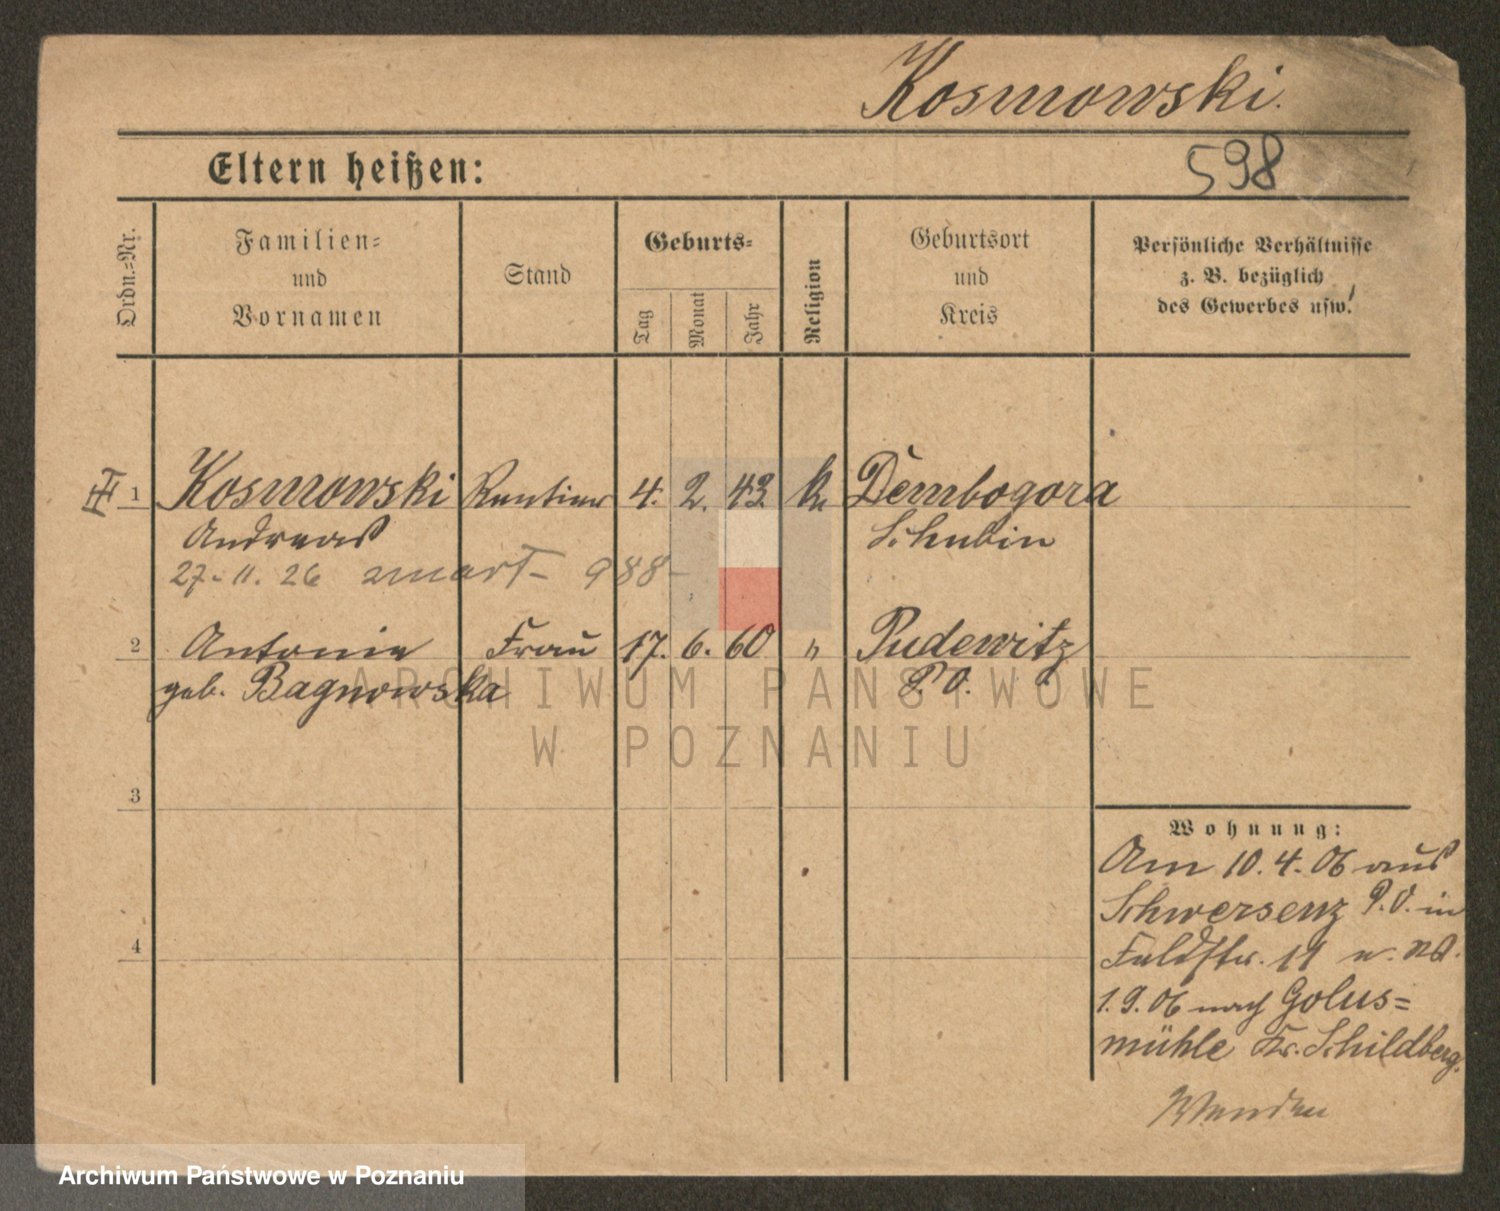 Kosmowski.
Eltern heißen:
598
Ordn.=Nr.
Familien=
und
Vornamen
Stand
Geburts=
Tag
Monat
Jahr
Religion
Geburtsort
und
Kreis
Persönliche Verhältnisse
z. B. bezüglich
des Gewerbes usw.
1 Kosmowski Rentier 4. 2. 43. k. Dembogora
Andreas Schubin
27.11.26 zmarł 988
2 Antonie Frau 17. 6. 60 " Pudewitz
geb. Bagnowska P.O.
3
4
Wohnung:
Am 10.4.06 aus
Schwersenz P.O. in
Feldstr. 11 u. am
1.9.06 nach Golus=
mühle Kr. Schildberg.
Wenden
ARCHIWUM PAŃSTWOWE
W POZNANIU
Archiwum Państwowe w Poznaniu